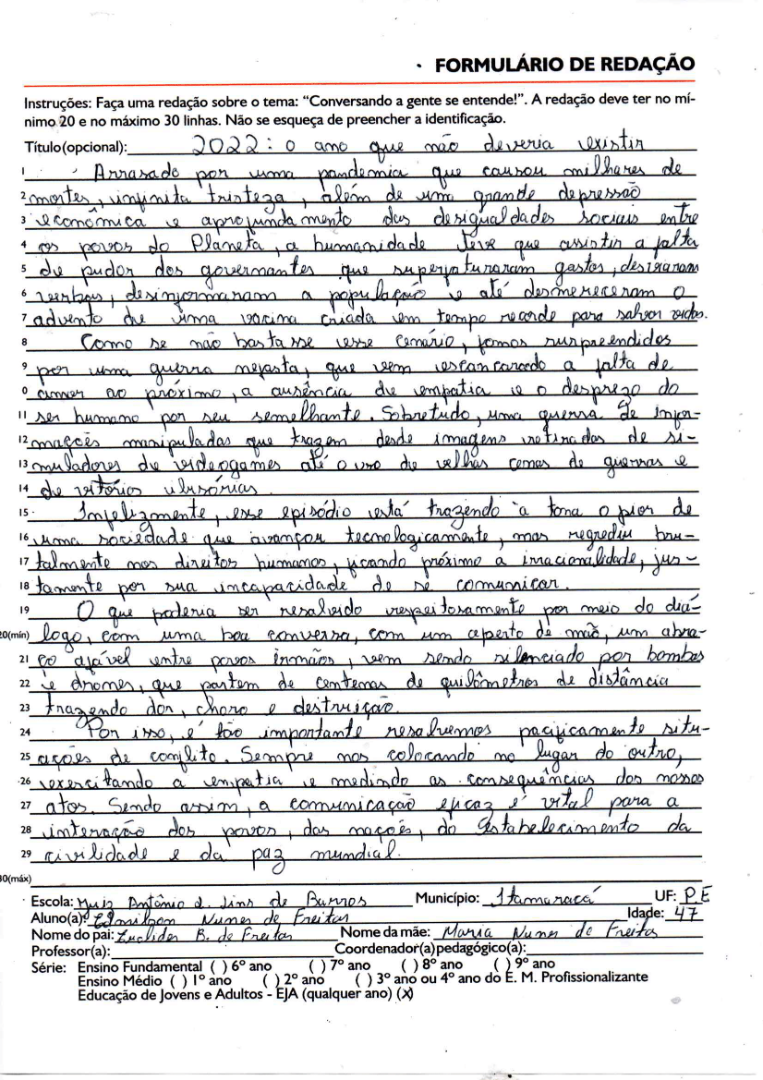 FORMULÁRIO DE REDAÇÃO
Instruções: Faça uma redação sobre o tema: "Conversando a gente se entende!". A redação deve ter no mí-
nimo 20 e no máximo 30 linhas. Não se esqueça de preencher a identificação.
Título(opcional): 2022: o ano que não deveria existir
1 Arrasado por uma pandemia que causou milhares de
2 mortes, infinita tristeza, além de uma grande depressão
3 econômica e aprofundamento das desigualdades sociais entre
4 os povos do Planeta, a humanidade teve que assistir a falta
5 de pudor dos governantes que superfaturaram gastos, desviaram
6 verbas, desinformaram a população e até desmereceram o
7 advento de uma vacina criada em tempo recorde para salvar vidas.
8 Como se não bastasse esse cenário, fomos surpreendidos
9 por uma guerra nefasta, que vem escancarando a falta de
0 amor ao próximo, a ausência de empatia e o desprezo do
11 ser humano por seu semelhante. Sobretudo, uma guerra de infor-
12 mações manipuladas que trazem desde imagens retiradas de si-
13 muladores de videogames até o uso de velhas cenas de guerras e
14 de vitórias ilusórias.
15 Infelizmente, esse episódio está trazendo à tona o pior de
16 uma sociedade que avançou tecnologicamente, mas regrediu bru-
17 talmente nos direitos humanos, ficando próximo a irracionalidade, jus-
18 tamente por sua incapacidade de se comunicar.
19 O que poderia ser resolvido respeitosamente por meio do diá-
20(mín) logo, com uma boa conversa, com um aperto de mão, um abra-
21 ço afável entre povos irmãos, vem sendo silenciado por bombas
22 e drones, que partem de centenas de quilômetros de distância
23 trazendo dor, choro e destruição.
24 Por isso, é tão importante resolvermos pacificamente situ-
25 ações de conflito. Sempre nos colocando no lugar do outro,
26 exercitando a empatia e medindo as consequências dos nossos
27 atos. Sendo assim, a comunicação eficaz é vital para a
28 interação dos povos, das nações, do estabelecimento da
29 civilidade e da paz mundial.
30(máx)
Escola: Antônio de Barros Município: Itamaracá UF: PE
Aluno(a): Edmilson Nunes de Freitas Idade: 47
Nome do pai: Euclides B. de Freitas Nome da mãe: Maria Nunes de Freitas
Professor(a): Coordenador(a) pedagógico(a):
Série: Ensino Fundamental ( ) 6º ano ( ) 7º ano ( ) 8º ano ( ) 9º ano
Ensino Médio ( ) 1º ano ( ) 2º ano ( ) 3º ano ou 4º ano do E. M. Profissionalizante
Educação de Jovens e Adultos - EJA (qualquer ano) (X)